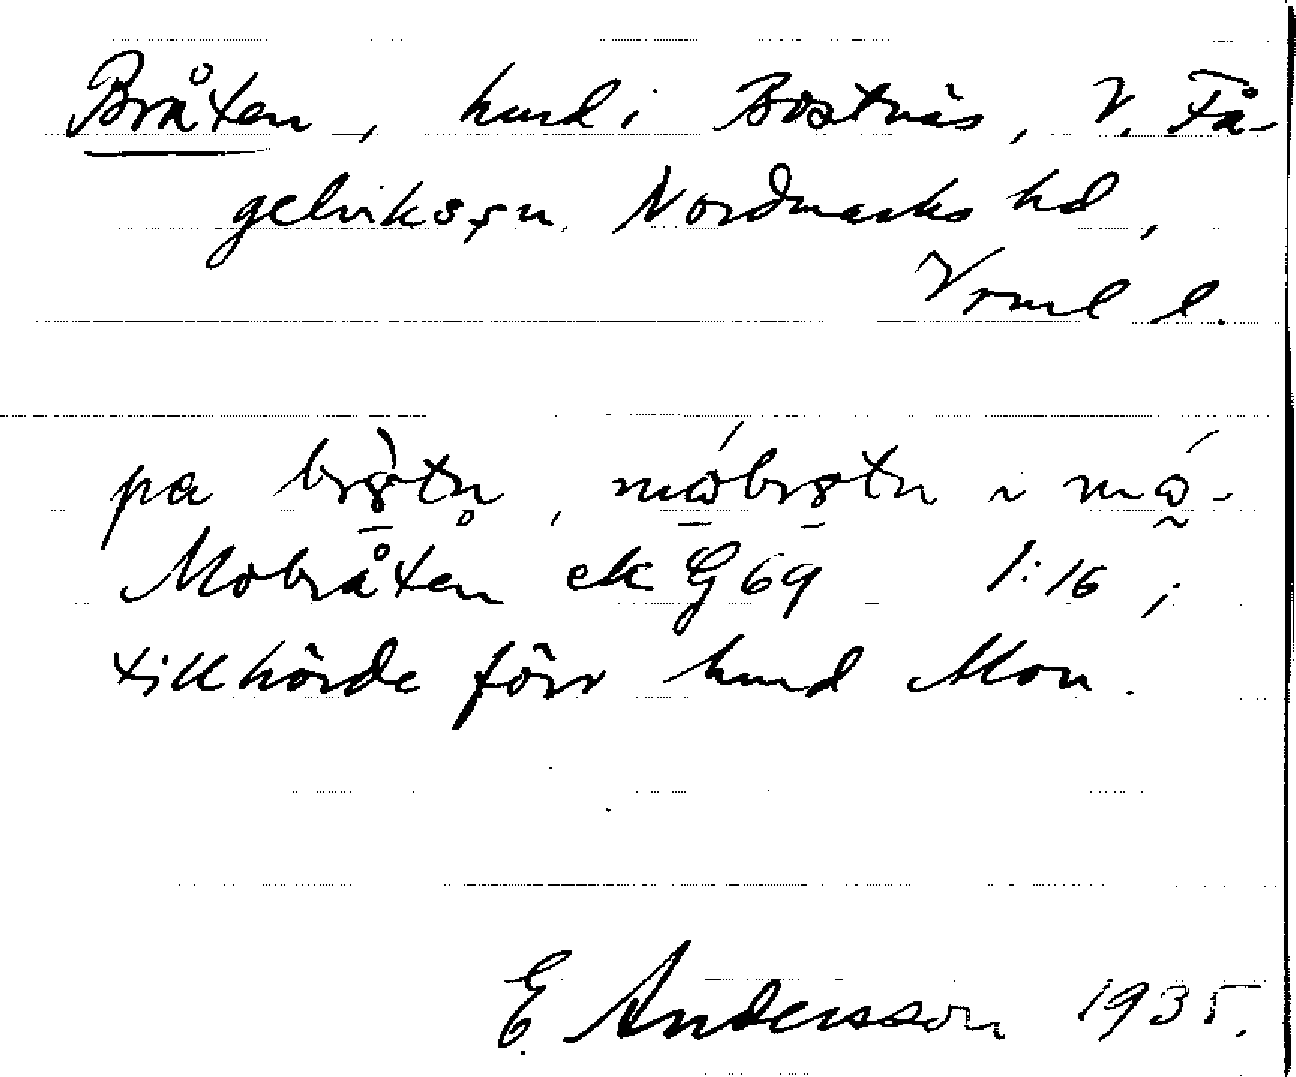 Bråten, hmd i Bostnäs, V. Få-
gelvikssn. Nordmarks hd,
Vrml l.
pa
Mobråten ek G 69 1:16;
tillhörde förr hmd Mon.
E. Andersson 1935.